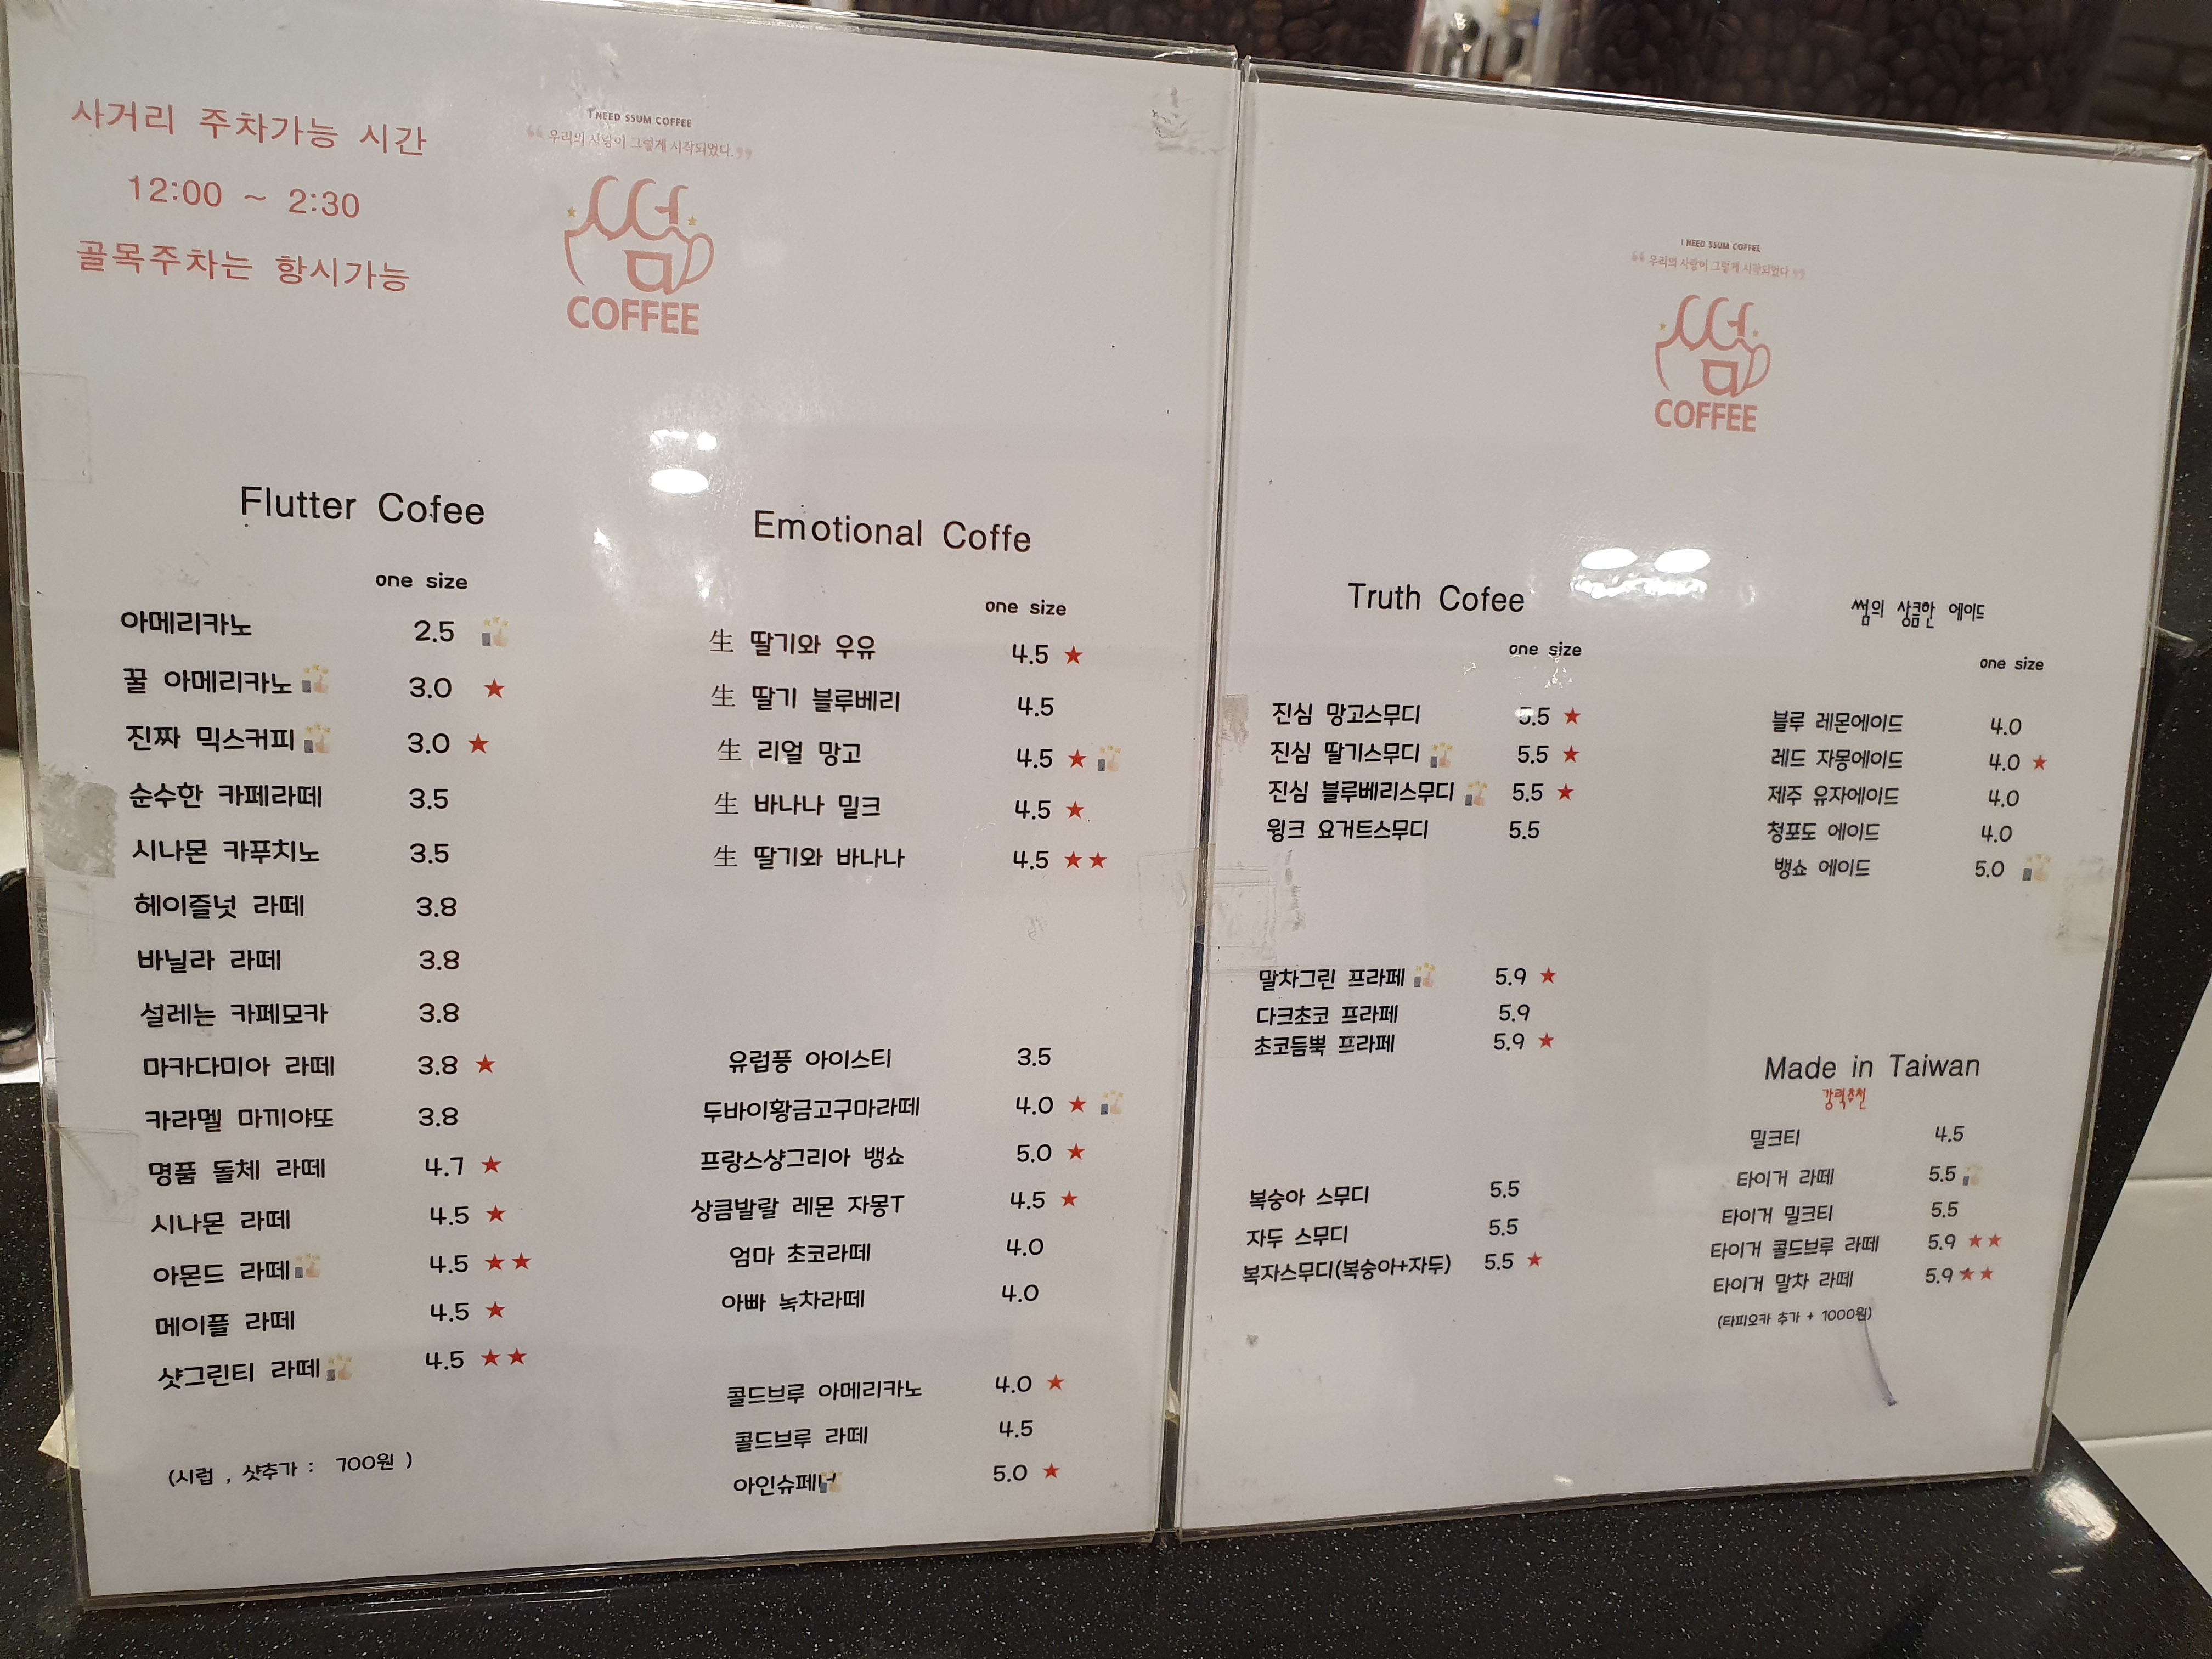 사거리 주차가능 시간
12:00 ~ 2:30
골목주차는 항시가능
I NEED SSUM COFFEE
“ 우리의 사랑이 그렇게 시작되었다. ”
썸
COFFEE
Flutter Cofee
one size
아메리카노 2.5
꿀 아메리카노 3.0 ★
진짜 믹스커피 3.0 ★
순수한 카페라떼 3.5
시나몬 카푸치노 3.5
헤이즐넛 라떼 3.8
바닐라 라떼 3.8
설레는 카페모카 3.8
마카다미아 라떼 3.8 ★
카라멜 마끼야또 3.8
명품 돌체 라떼 4.7 ★
시나몬 라떼 4.5 ★
아몬드 라떼 4.5 ★★
메이플 라떼 4.5 ★
샷그린티 라떼 4.5 ★★
(시럽 , 샷추가 : 700원 )
Emotional Coffe
one size
生 딸기와 우유 4.5 ★
生 딸기 블루베리 4.5
生 리얼 망고 4.5 ★
生 바나나 밀크 4.5 ★
生 딸기와 바나나 4.5 ★★
유럽풍 아이스티 3.5
두바이황금고구마라떼 4.0 ★
프랑스샹그리아 뱅쇼 5.0 ★
상큼발랄 레몬 자몽T 4.5 ★
엄마 초코라떼 4.0
아빠 녹차라떼 4.0
콜드브루 아메리카노 4.0 ★
콜드브루 라떼 4.5
아인슈페너 5.0 ★
I NEED SSUM COFFEE
“ 우리의 사랑이 그렇게 시작되었다. ”
썸
COFFEE
Truth Cofee
one size
진심 망고스무디 5.5 ★
진심 딸기스무디 5.5 ★
진심 블루베리스무디 5.5 ★
윙크 요거트스무디 5.5
말차그린 프라페 5.9 ★
다크초코 프라페 5.9
초코듬뿍 프라페 5.9 ★
복숭아 스무디 5.5
자두 스무디 5.5
복자스무디(복숭아+자두) 5.5 ★
썸의 상큼한 에이드
one size
블루 레몬에이드 4.0
레드 자몽에이드 4.0 ★
제주 유자에이드 4.0
청포도 에이드 4.0
뱅쇼 에이드 5.0
Made in Taiwan
강력추천
밀크티 4.5
타이거 라떼 5.5
타이거 밀크티 5.5
타이거 콜드브루 라떼 5.9 ★★
타이거 말차 라떼 5.9 ★★
(타피오카 추가 + 1000원)